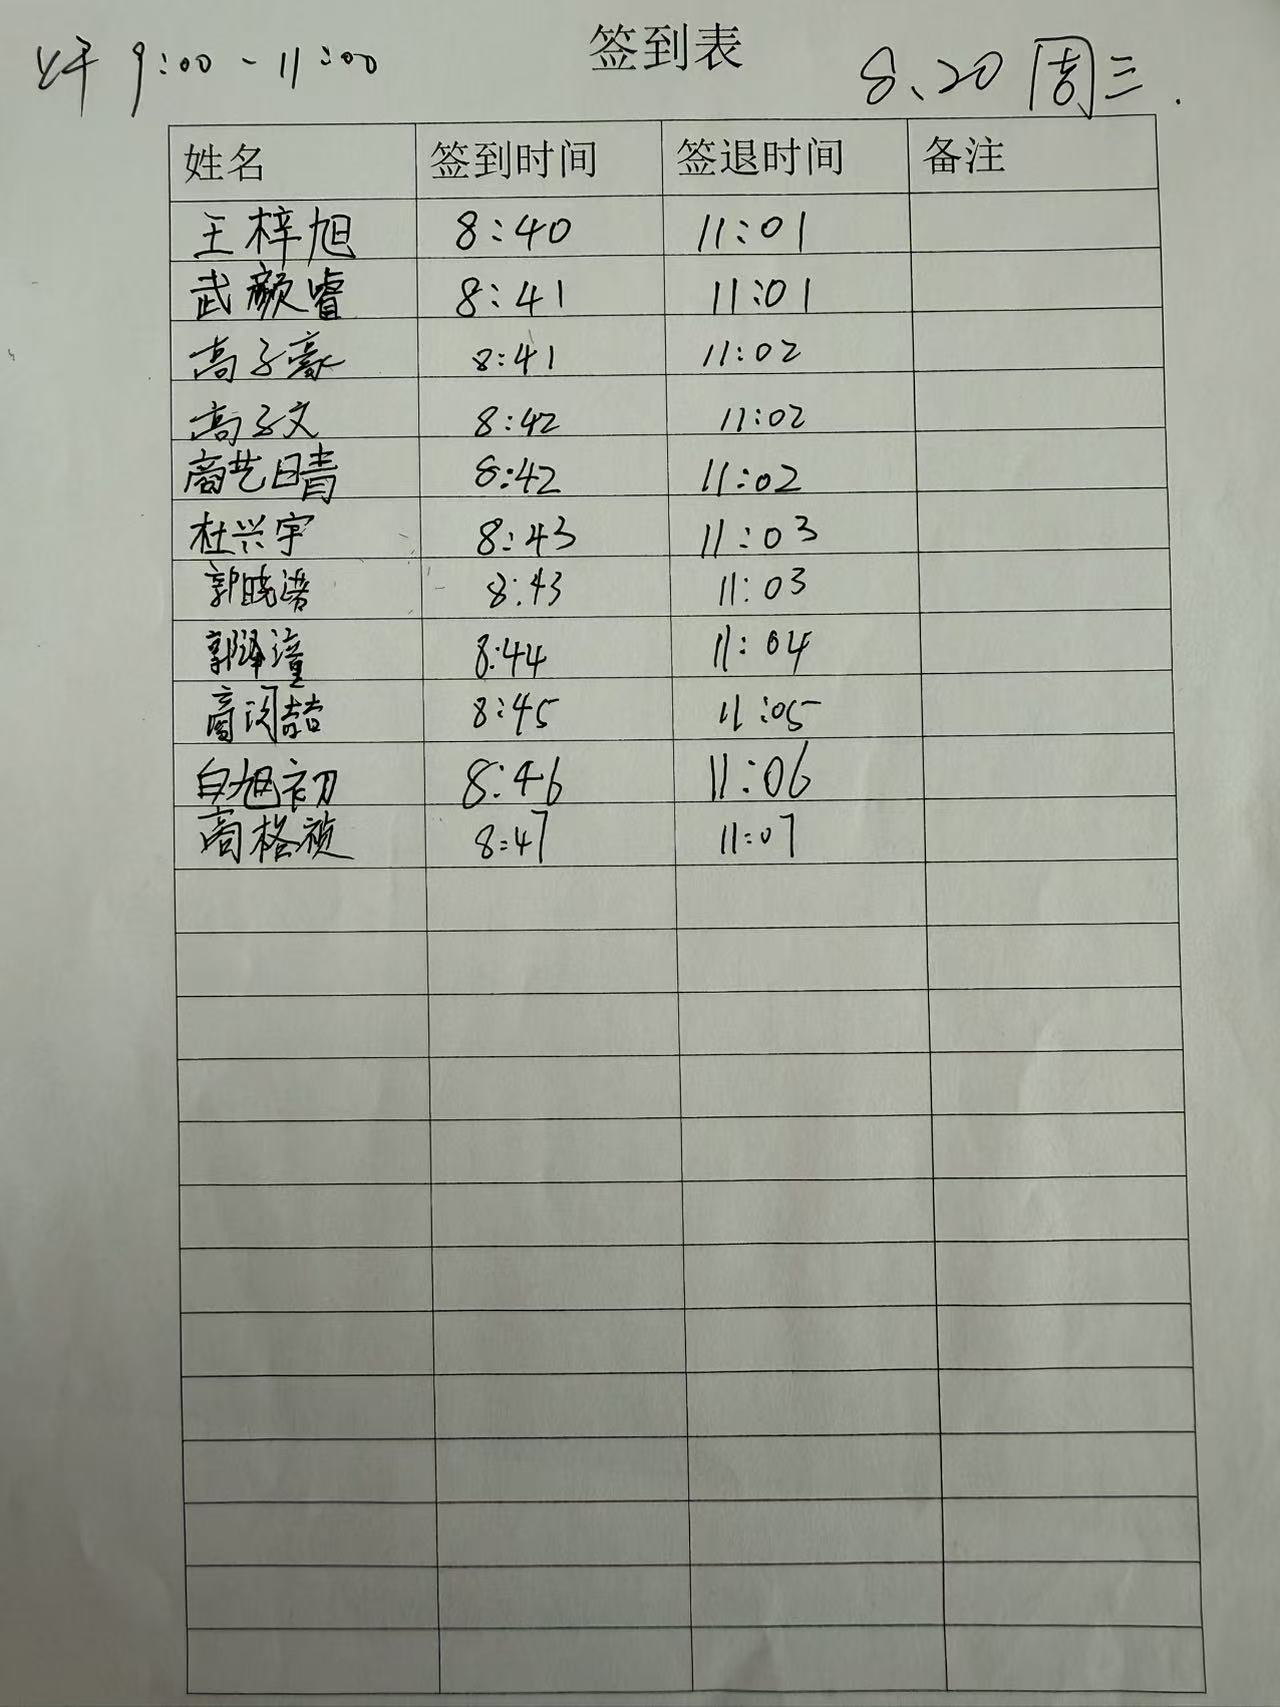 签到表
上午 9:00-11:00
8、20 周三.
姓名 签到时间 签退时间 备注
王梓旭 8:40 11:01
武颜睿 8:41 11:01
高子豪 8:41 11:02
高子文 8:42 11:02
商艺晴 8:42 11:02
杜兴宇 8:43 11:03
郭晓 8:43 11:03
郭泽潼 8:44 11:04
商闵喆 8:45 11:05
白旭初 8:46 11:06
商格祯 8:47 11:07